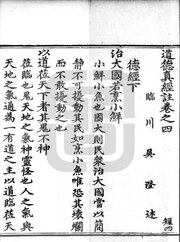 道德真經註卷之四
臨川吳澄述
德經下
治大國若烹小鮮
小鮮小魚也國大則民衆治大國當以簡
靜不可擾動其民如烹小魚唯恐其壞爛
而不敢擾動之也
以道莅天下者其鬼不神
莅臨也鬼天地之氣神靈怪也人之氣與
天地之氣通爲一有道之主以道臨莅天